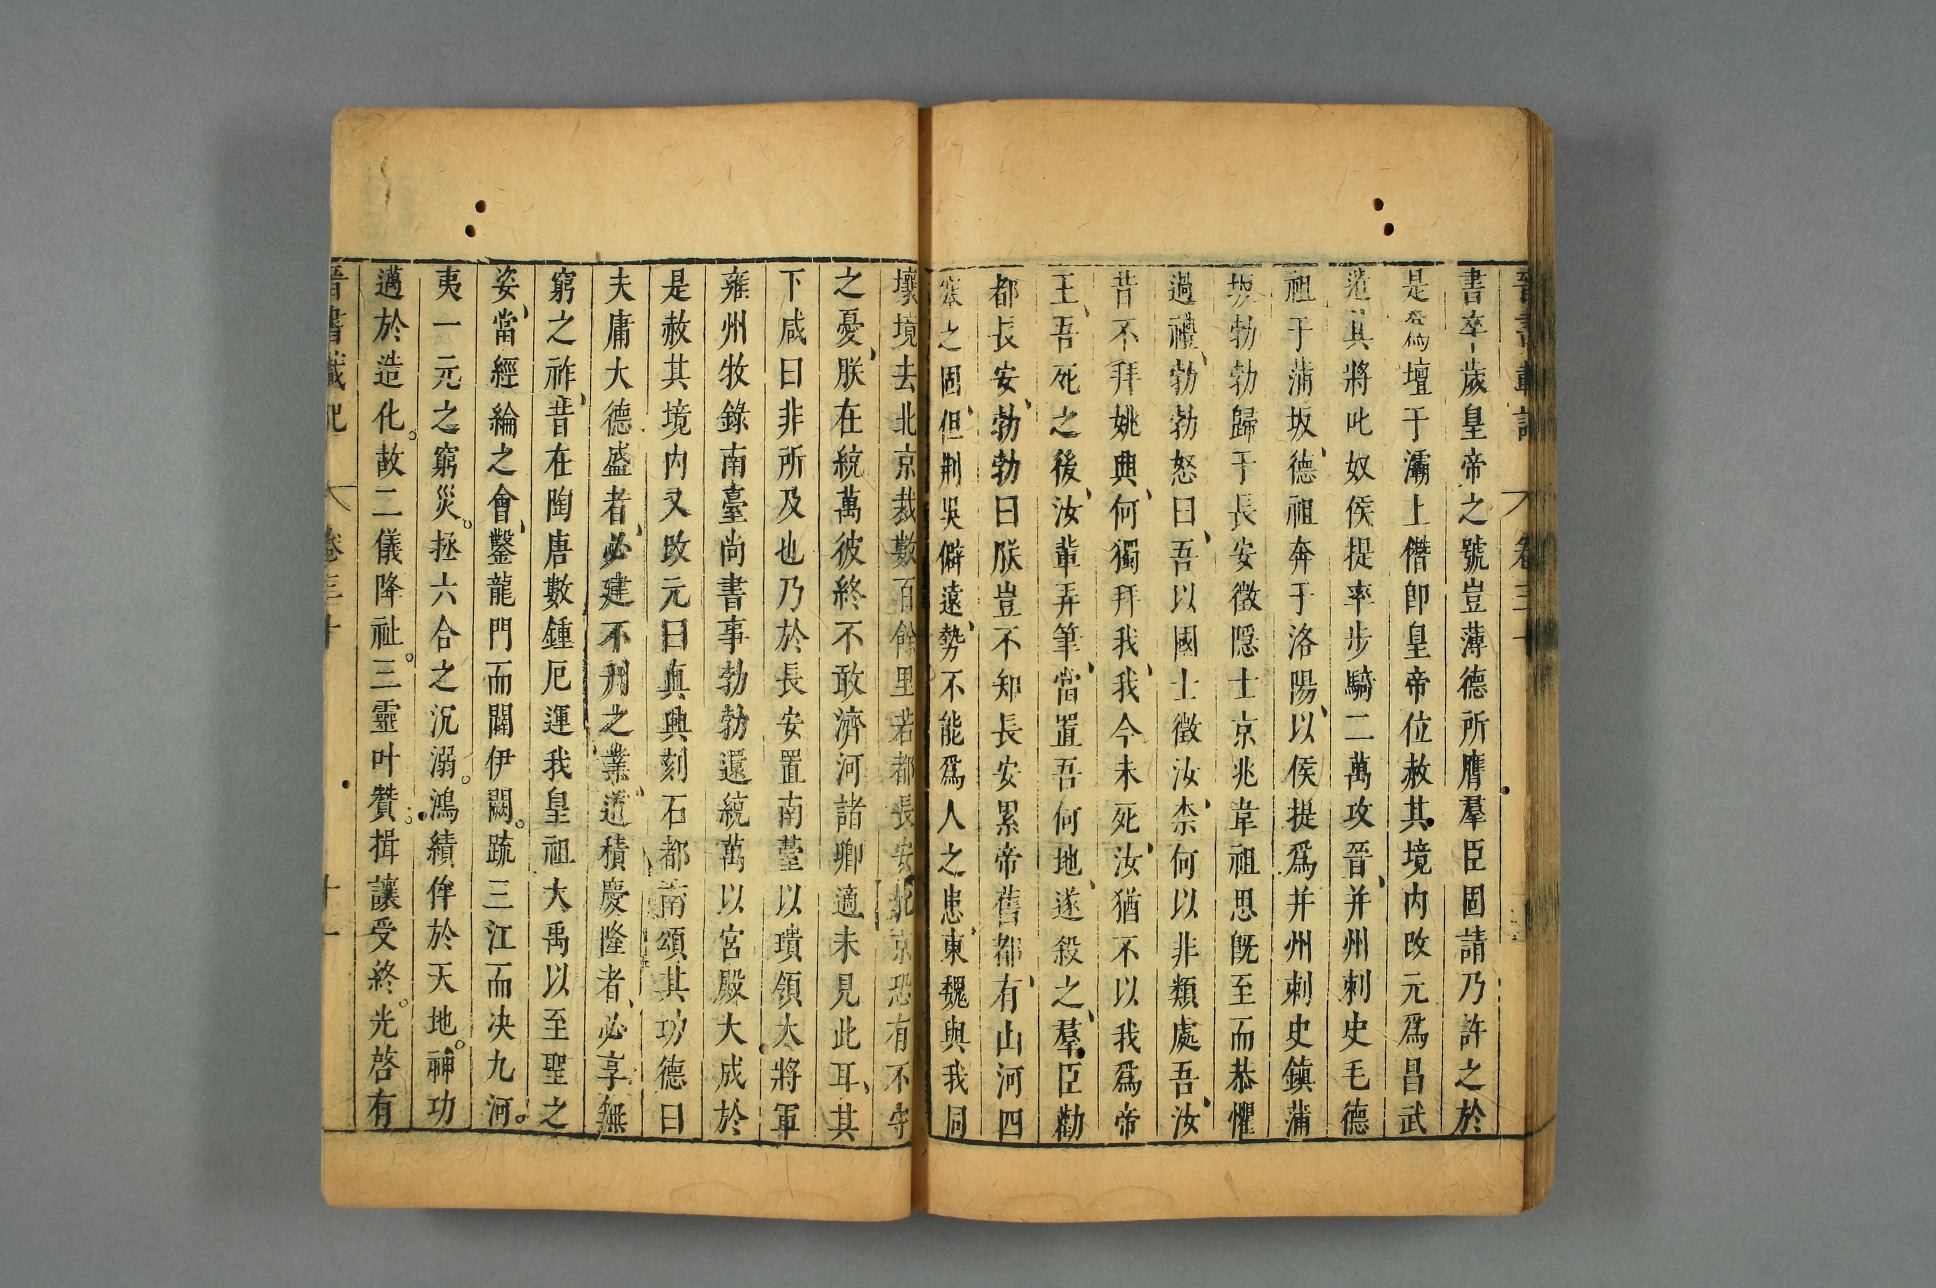 晉書載記 卷三十
書卒歲皇帝之號豈薄德所膺羣臣固請乃許之於
是爲壇于灞上僭卽皇帝位赦其境內改元爲昌武
遣其將叱奴侯提率步騎二萬攻晉并州刺史毛德
祖于蒲坂德祖奔于洛陽以侯提爲并州刺史鎮蒲
坂勃勃歸于長安徵隱士京兆韋祖思旣至而恭懼
過禮勃勃怒曰吾以國士徵汝柰何以非類處吾汝
昔不拜姚興何獨拜我我今未死汝猶不以我爲帝
王吾死之後汝輩弄筆當置吾何地遂殺之羣臣勸
都長安勃勃曰朕豈不知長安累帝舊都有山河四
塞之固但荆吳僻遠勢不能爲人之患東魏與我同
壤境去北京裁數百餘里若都長安北京恐有不守
之憂朕在統萬彼終不敢濟河諸卿適未見此耳其
下咸曰非所及也乃於長安置南臺以璝領大將軍
雍州牧錄南臺尚書事勃勃還統萬以宮殿大成於
是赦其境內又改元曰真興刻石都南頌其功德曰
夫庸大德盛者必建不刋之業道積慶隆者必享無
窮之祚昔在陶唐數鍾厄運我皇祖大禹以至聖之
姿當經綸之會鑿龍門而闢伊闕疏三江而决九河
夷一元之窮災拯六合之沉溺鴻績侔於天地神功
邁於造化故二儀降祉三靈叶贊揖讓受終光啓有
晉書載記 卷三十 十一